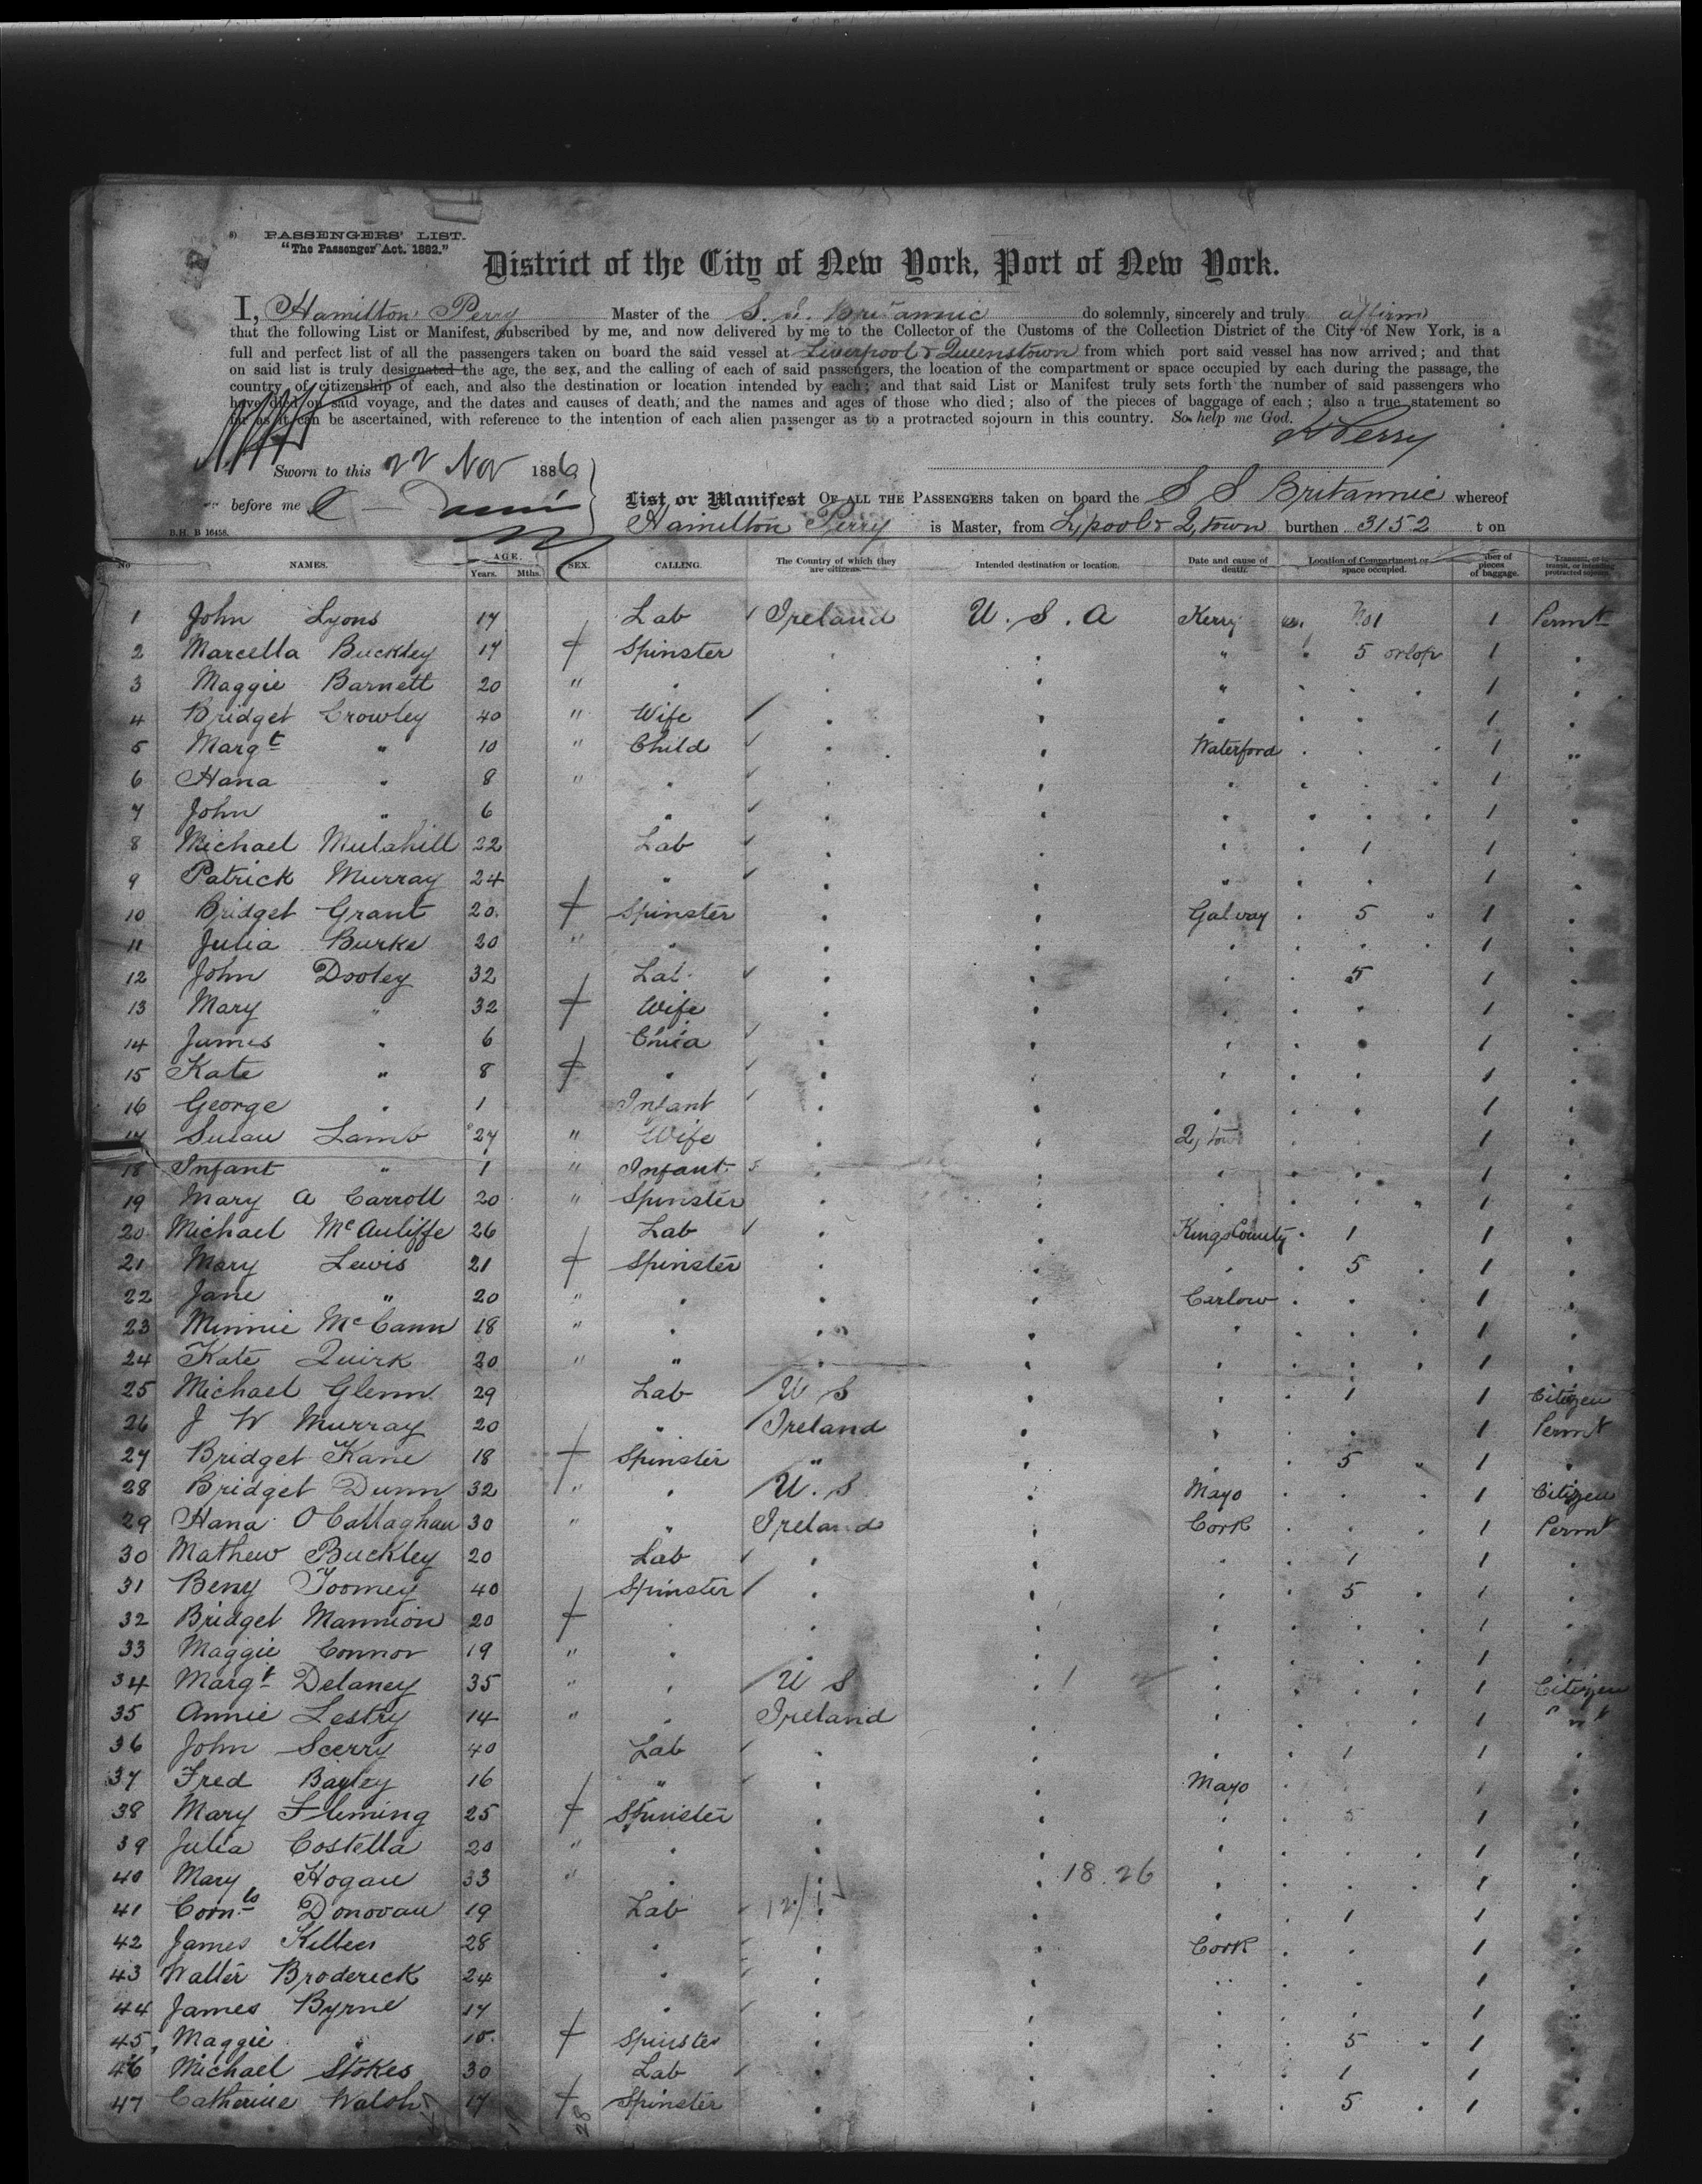 PASSENGERS' LIST.
"The Passenger Act. 1882."
District of the City of New York, Port of New York.
I, Hamilton Perry Master of the S. S. Britannic do solemnly, sincerely and truly affirm
that the following List or Manifest, subscribed by me, and now delivered by me to the Collector of the Customs of the Collection District of the City of New York, is a
full and perfect list of all the passengers taken on board the said vessel at Liverpool & Queenstown from which port said vessel has now arrived; and that
on said list is truly designated the age, the sex, and the calling of each of said passengers, the location of the compartment or space occupied by each during the passage, the
country of citizenship of each, and also the destination or location intended by each; and that said List or Manifest truly sets forth the number of said passengers who
have died on said voyage, and the dates and causes of death, and the names and ages of those who died; also of the pieces of baggage of each; also a true statement so
far as it can be ascertained, with reference to the intention of each alien passenger as to a protracted sojourn in this country. So help me God.
H Perry
Sworn to this 22 Nov 1886
before me
List or Manifest OF ALL THE PASSENGERS taken on board the S S Britannic whereof
Hamilton Perry is Master, from L,pool & Q,town burthen 3152 t on
B.H. B 16458.
No NAMES. AGE. Years. Mths. SEX. CALLING. The Country of which they are citizens. Intended destination or location. Date and cause of death. Location of Compartment or space occupied. ber of pieces of baggage. transit, or intending protracted sojourn.
1 John Lyons 17 Lab Ireland U. S. A Kerry No 1 1 Permt
2 Marcella Buckley 17 Spinster " 5 orlop 1
3 Maggie Barnett 20 " " 1
4 Bridget Crowley 40 " Wife " 1
5 Margt " 10 " Child Waterford 1 "
6 Hana " 8 " 1
7 John " 6 " 1
8 Michael Mulahill 22 Lab 1 1
9 Patrick Murray 24 " " 1
10 Bridget Grant 20 Spinster Galway 5 " 1
11 Julia Burke 20 " 1
12 John Dooley 32 Lab 5 1
13 Mary " 32 Wife 1
14 James " 6 1
15 Kate " 8 1
16 George " 1 Infant 1
17 Susan Lamb 27 " Wife Q, tow 1
18 Infant " 1 " Infant 1
19 Mary A Carroll 20 " Spinster 1
20 Michael McAuliffe 26 Lab Kings County 1 1
21 Mary Lewis 21 Spinster 5 1
22 Jane " 20 " Carlow 1
23 Minnie McCann 18 " 1
24 Kate Quirk 20 " " 1
25 Michael Glenn 29 Lab U S 1 1 Citizen
26 J W Murray 20 " Ireland 1 Permt
27 Bridget Kane 18 Spinster " 5 " 1
28 Bridget Dunn 32 " U. S Mayo 1 Citizen
29 Hana O'Callaghan 30 " " Ireland Cork 1 Permt
30 Mathew Buckley 20 Lab 1 1
31 Beny Toomey 40 Spinster 5 1
32 Bridget Mannion 20 1
33 Maggie Connor 19 " 1
34 Margt Delaney 35 " U S 1 Citizen
35 Annie Lestry 14 " Ireland 1
36 John Scerry 40 Lab 1 1
37 Fred Bayley 16 " Mayo 1
38 Mary Fleming 25 Spinster 5 1
39 Julia Costella 20 " 1
40 Mary Hogan 33 " 18.26 1
41 Corn.ls Donovan 19 Lab 1 1
42 James Killeen 28 Cork 1
43 Walter Broderick 24 1
44 James Byrne 17 1
45 Maggie " 15 Spinster 5 " 1
46 Michael Stokes 30 Lab 1 1
47 Catherine Walsh 17 Spinster 5 1
28